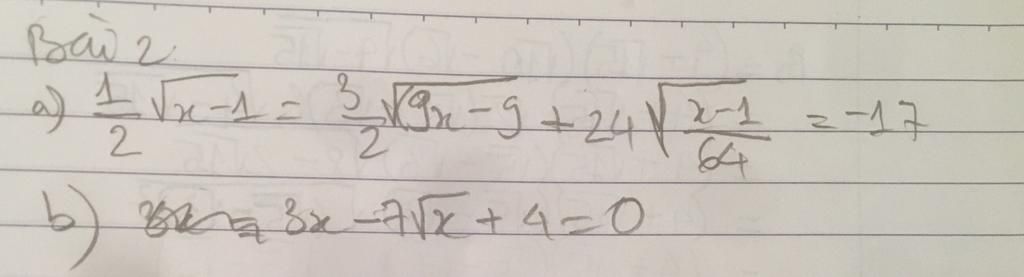 Bài 2
a) 1/2 √(x-1) = 3/2 √(9x-9) + 24 √((x-1)/64) = -17
b) 3x - 7√x + 4 = 0